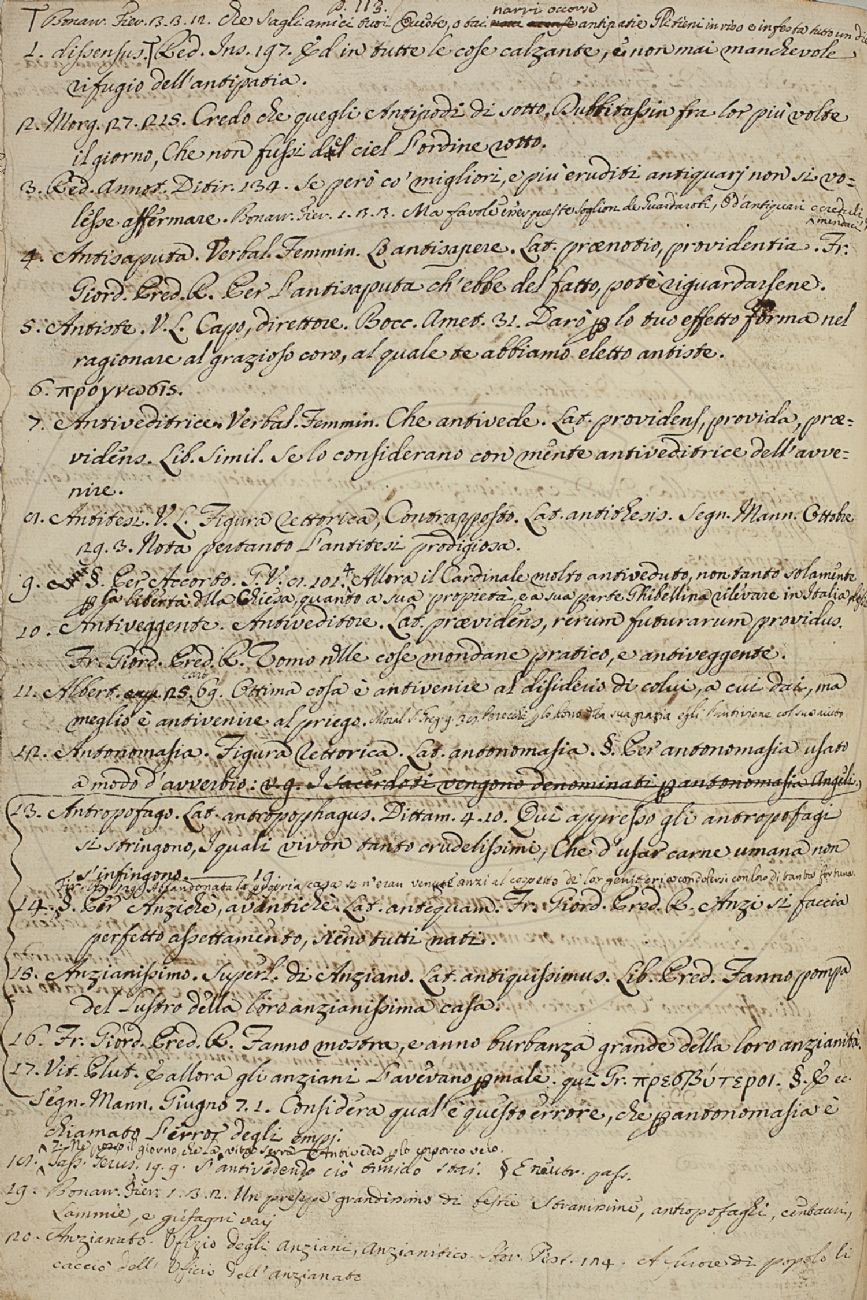 p. 113.
narri occorse
T Bonarr. Fier. 13. 13. 12. che s'agli amici tuoi antipatie Gli tieni in riso e in festa tuto un di
1. dissensus. T Red. Ins. 197. Ed in tutte le cose calzante, e non mai manchevole
rifugio dell'antipatia.
12. Morg. 127. 1215. Credo che quegli Antipodi di sotto, Dubbitassin fra lor più volte
il giorno, Che non fussi del ciel l'ordine rotto.
3. Red. Annot. Ditir. 134. Se però co' migliori, e più eruditi antiquarj non si vo=
lesse affermare. Bonarr. Fier. 1. 13. 13. Ma favole soglion de Guardaroti, e d'antiquari creduli
mendaci
4. Antisaputa. Verbal. Femmin. Lo antisapere. Lat. prænotio, providentia. Fr.
Giord. Pred. R. Per l'antisaputa ch'ebbe del fatto, potè riguardarsene.
5. Antiste. V. L. Capo, direttore. Bocc. Amet. 31. Darò p lo tuo effetto forma nel
ragionare al grazioso coro, al quale te abbiamo eletto antiste.
6. προγνωσις.
7. Antiveditrice. Verbal. Femmin. Che antivede. Lat. providens, provida, præ=
videns. Lib. Simil. Se lo considerano con mente antiveditrice dell'avve=
nire.
Antitesi. V. L. Figura rettorica, Contrapposto. Lat. antithesis. Segn. Mann. Ottobre
129. 3. Nota pertanto l'antitesi prodigiosa.
9. §. Per Accorto. Allora il Cardinale molto antiveduto, non tanto solamente
p la libertà della Chiesa, quanto a sua propietà, e a sua parte Ghibellina rilevare in Italia
10. Antiveggente. Antiveditore. Lat. prævidens, rerum futurarum providus.
Fr. Giord. Pred. R. Uomo nelle cose mondane pratico, e antiveggente.
11. Albert. cart. 69. Ottima cosa è antivenire al disiderio di colui, a cui dai, ma
meglio è antivenire al priego. Moral. S. Greg. sua grazia egli l'antiviene col suo aiuto
12. Antonomasia. Figura rettorica. Lat. antonomasia. §. Per antonomasia usato
a modo d'avverbio: v. g. I sacerdoti vengono denominati p antonomasia Angeli.
13. Antropofago. Lat. antropophagus. Dittam. 4. 10. Qui appresso gli antropofagi
si stringono, I quali vivon tanto crudelissimi, Che d'usar carne umana non
s'infingono.
abandonata la propria casa se n'eran venute anzi al cospetto de' lor genitori a condolersi con loro di tanta fortuna
14. §. Per Anzichè, avantichè. Lat. antequam. Fr. Giord. Pred. R. Anzi si faccia
perfetto assettamento, sieno tutti nati.
15. Anzianissimo. Superl. di Anziano. Lat. antiquissimus. Lib. Pred. Fanno pompa
del lustro della loro anzianissima casa.
16. Fr. Giord. Pred. R. Fanno mostra, e anno burbanza grande della loro anzianità.
17. Vit. Plut. E allora gli anziani l'avevano p male. qui Gr. πρεσβύτεροι. §. E ec.
Segn. Mann. Giugno 7. 1. Considera qual'è questo errore, che p antonomasia è
chiamato l'error degli empj.
il giorno, che la vita serra Antivede
Tass. Gerus. 19. 9. S'antivedendo ciò timido stai. § E neutr. pass.
19. Bonarr. Fier. 1. 3. 2. Un presepe grandissimo di bestie stranissime, antropofaghi,
Lammie, e
120. Anzianato. Ufizio degli Anziani, Anzianitico. Stor. Pist. 124. A furore di popolo li
cacciò dell'Uficio dell'anzianato